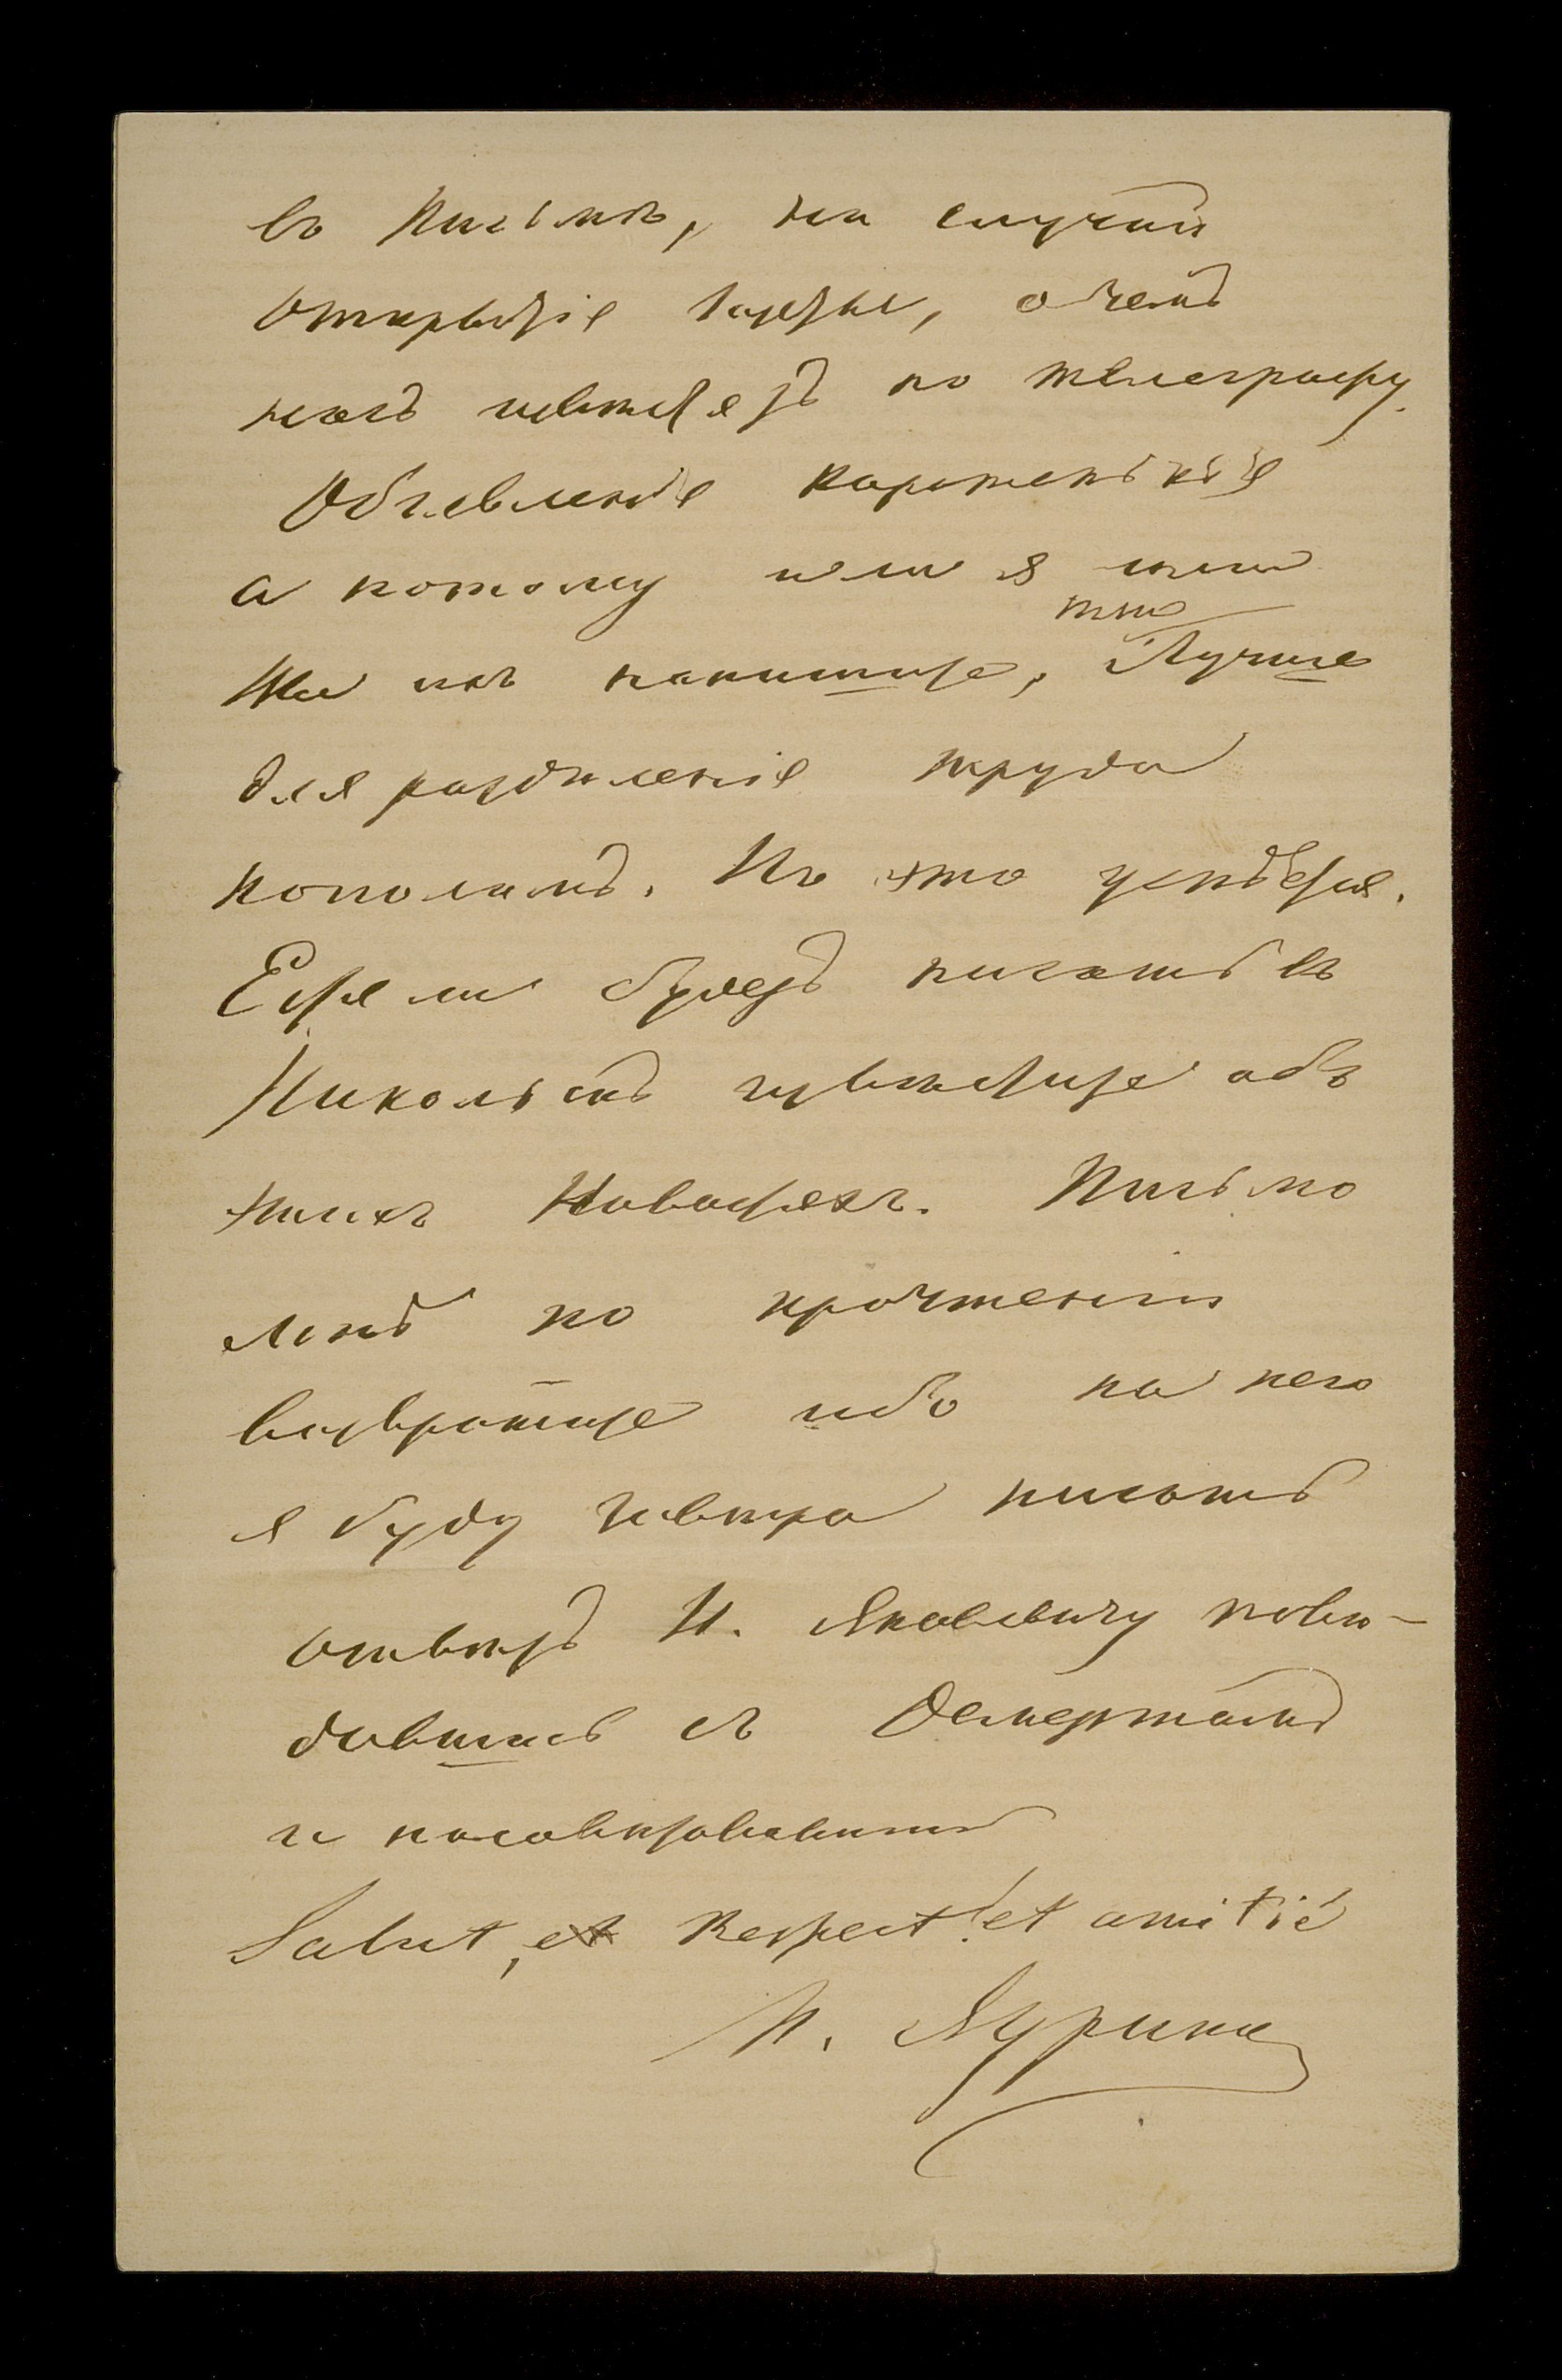 въ письмѣ, на случай
открытія вазы, о чемъ
насъ извѣстятъ по телеграфу.
Объявленія коротенькія
а потому или я
же ихъ напишите, Лучше
для раздѣленія труда
пополамъ. Но это успѣется.
Если будетъ писать въ
Никольскъ извѣстите объ
этихъ Новостяхъ. Письмо
мнѣ по прочтеніи
возвратите ибо на него
я буду завтра писать
отвѣтъ И. Яковлевичу пови-
давшись съ
и посовѣтовавшись
Salut, et Respect! et amitié
Н. Яурина